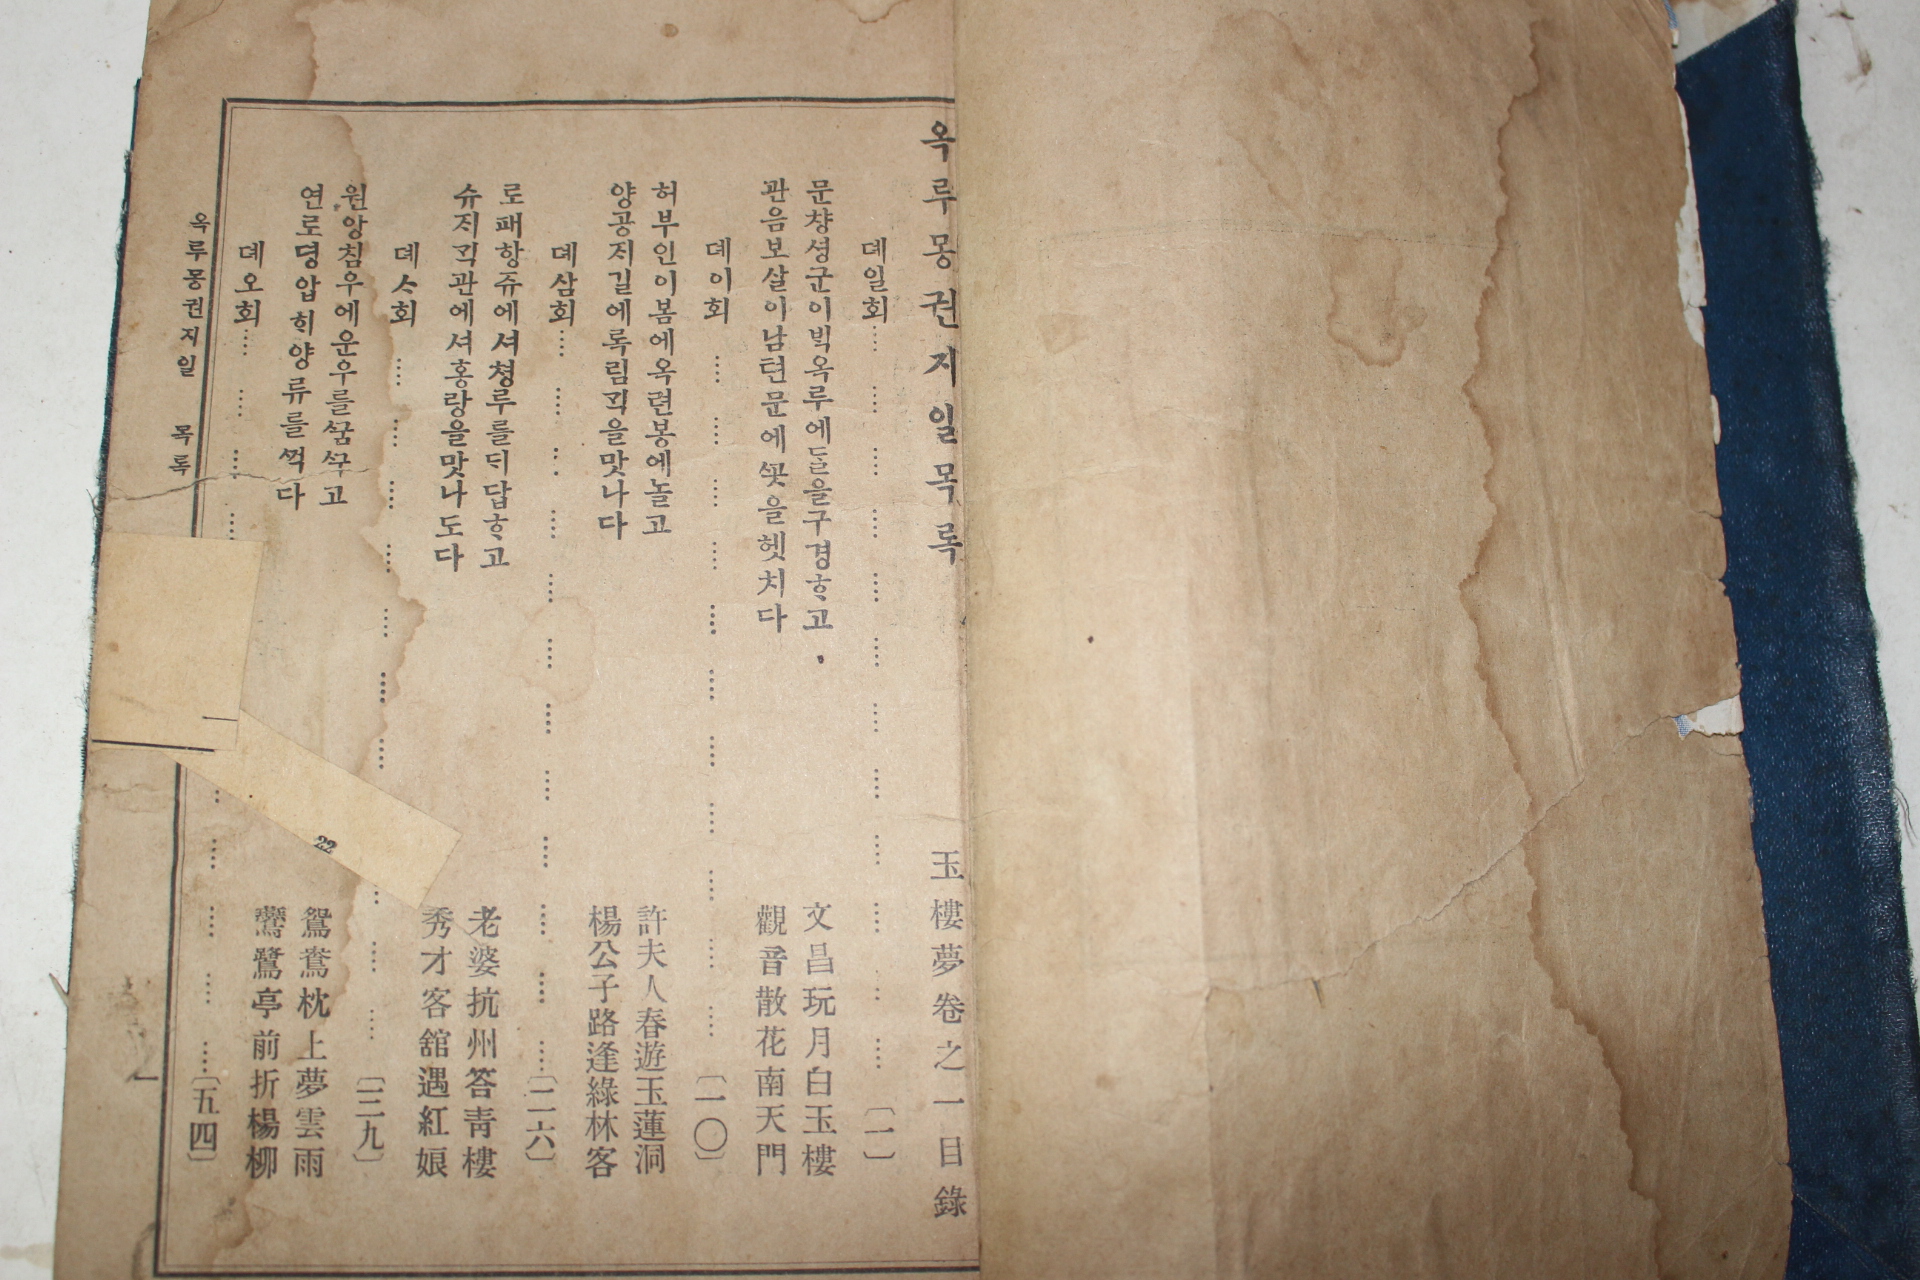 옥루몽권지일목록 玉樓夢卷之一目錄
뎨일회 〔一〕
문챵셩군이ᄇᆡᆨ옥루에ᄃᆞᆯ을구경ᄒᆞ고 文昌玩月白玉樓
관음보살이남텬문에ᄭᅩᆺ을헷치다 觀音散花南天門
뎨이회 〔一〇〕
허부인이봄에옥련봉에놀고 許夫人春遊玉蓮洞
양공ᄌᆞ길에록림ᄀᆡᆨ을맛나다 楊公子路逢綠林客
뎨삼회 〔二六〕
로패항쥬에셔쳥루를ᄃᆡ답ᄒᆞ고 老婆抗州答靑樓
슈ᄌᆡᄀᆡᆨ관에셔홍랑을맛나도다 秀才客舘遇紅娘
뎨ᄉᆞ회 〔三九〕
원앙침우에운우를ᄭᅮᆷᄭᅮ고 鴛鴦枕上夢雲雨
연로뎡압ᄒᆡ양류를ᄭᅥᆨ다 鷰鷺亭前折楊柳
뎨오회 〔五四〕
옥루몽권지일 목록 一
22